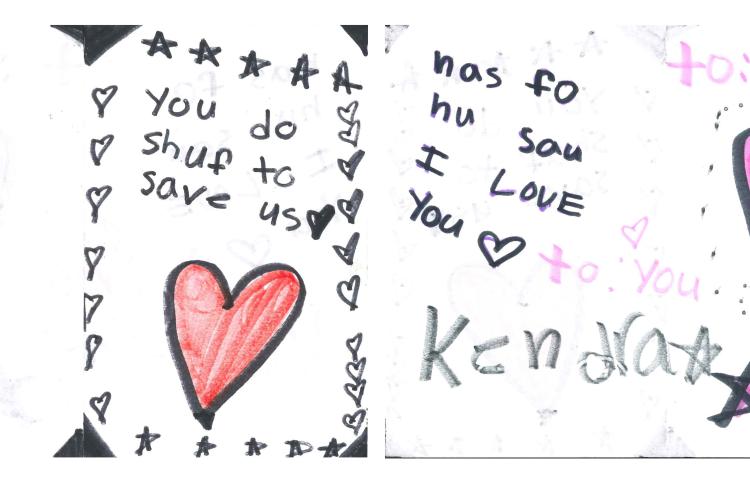 You do
shuf to
save us
nas fo
hu sau
I LOVE
You
to: You
Kendra
to: